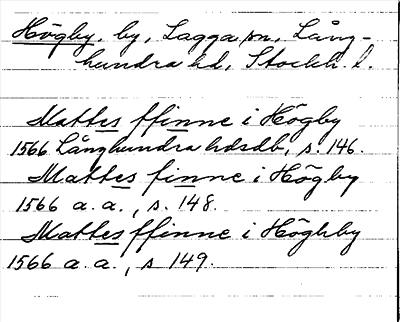 Högby, by, Lagga sn, Lång-
hundra hd, Stockh. l.
Mattes ffinne i Högby
1566 Långhundra hdsdb, s. 146.
Mattes finne i Högby
1566 a. a., s. 148.
Mattes ffinne i Höghby
1566 a. a., s 149.